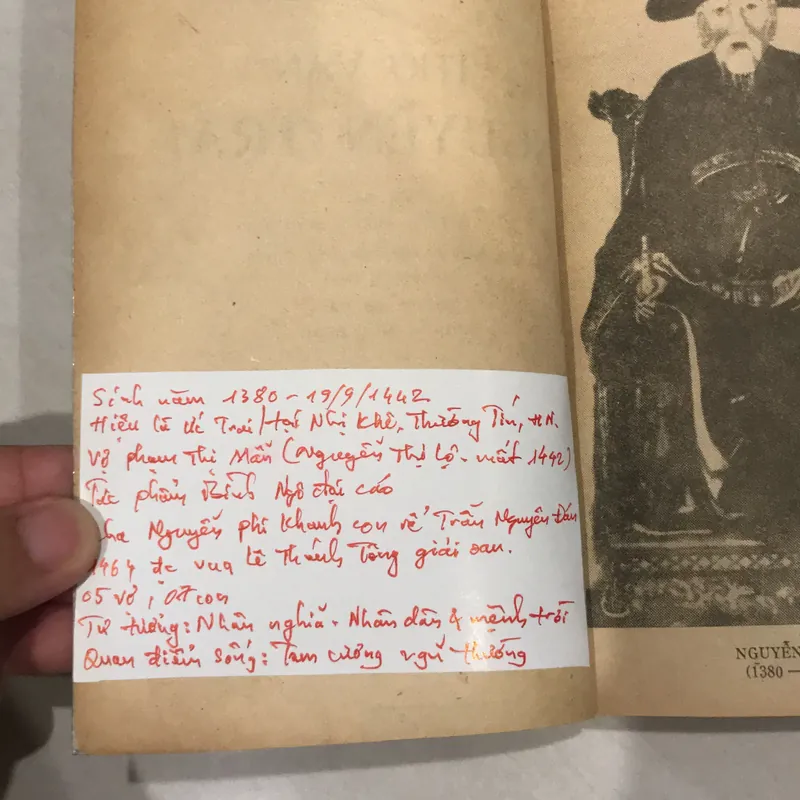 Sinh năm 1380 - 19/9/1442
Hiệu là Ức Trai / tại Nhị Khê, Thường Tín, HN.
Vợ phạm Thị Mẫn (Nguyễn Thị Lộ - mất 1442)
Tác phẩm Bình Ngô đại cáo
Cha Nguyễn phi Khanh con rể Trần Nguyên Đán
1464 đc vua Lê Thánh Tông giải oan.
05 vợ, 07 con
Tư tưởng: Nhân nghĩa - Nhân dân & mệnh trời
Quan điểm sống: Tam cương ngũ thường
NGUYỄN
(1380 —